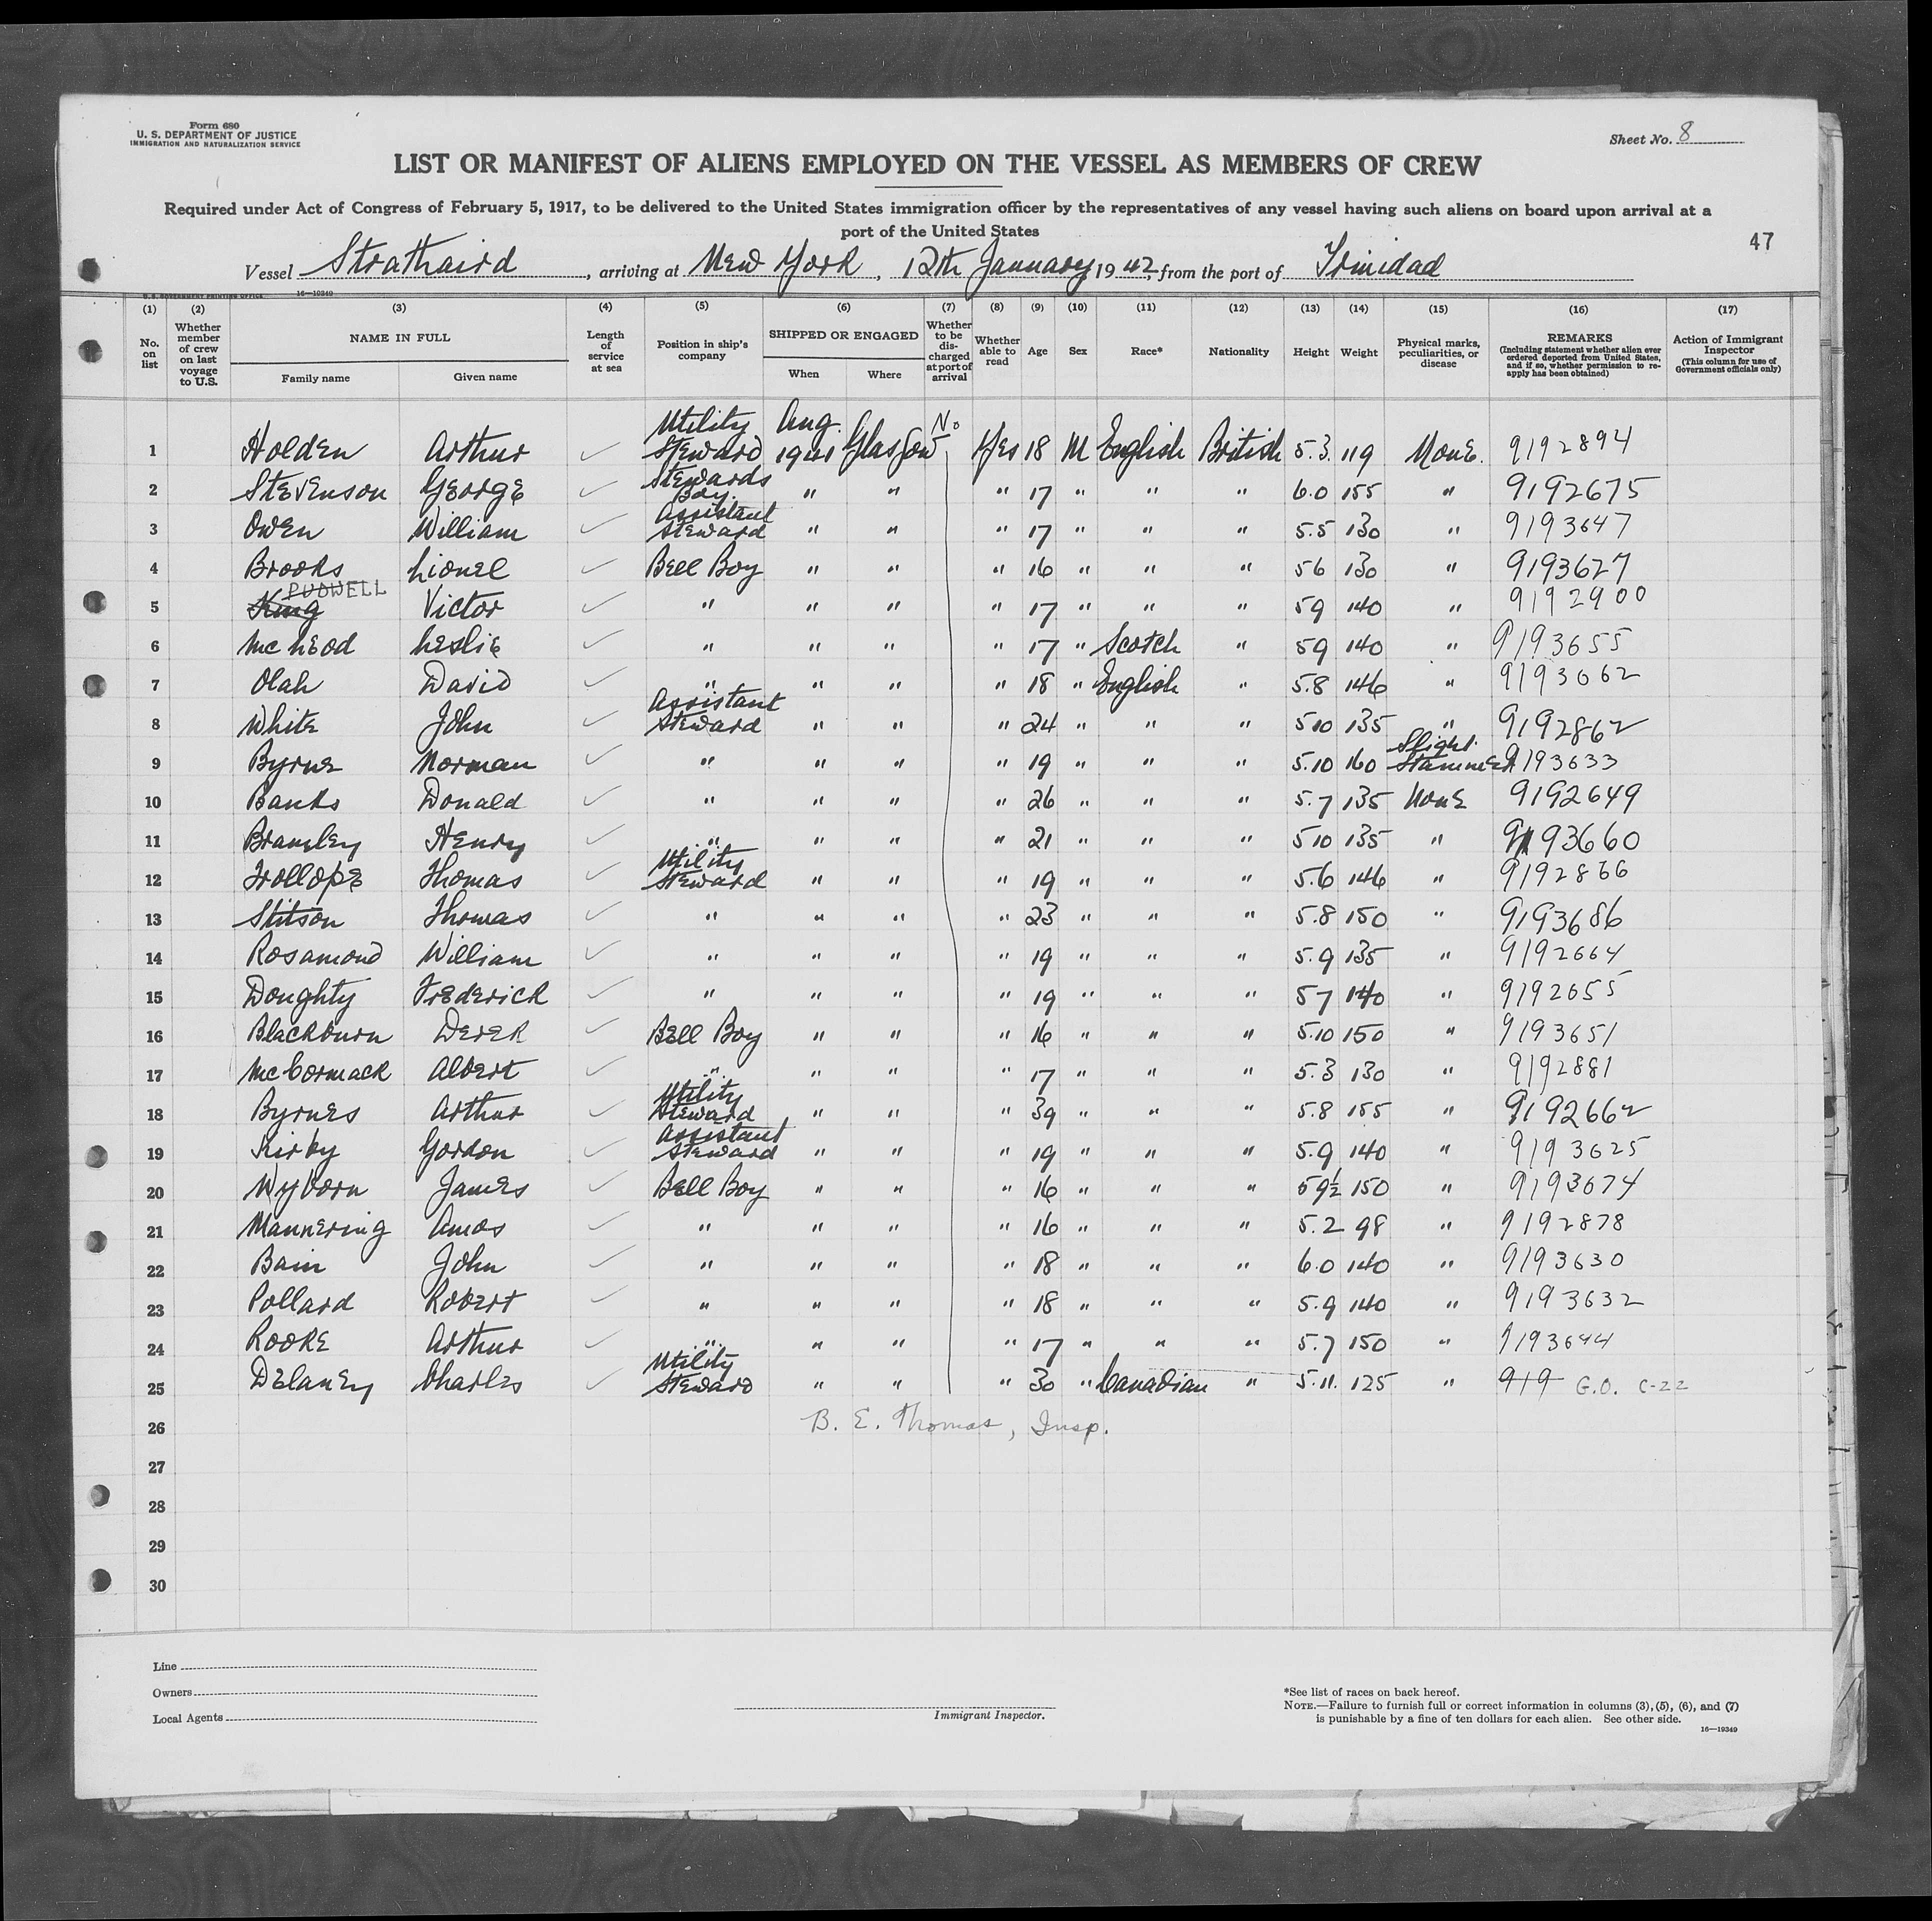 Form 680
U. S. DEPARTMENT OF JUSTICE
IMMIGRATION AND NATURALIZATION SERVICE
Sheet No. 8
LIST OR MANIFEST OF ALIENS EMPLOYED ON THE VESSEL AS MEMBERS OF CREW
Required under Act of Congress of February 5, 1917, to be delivered to the United States immigration officer by the representatives of any vessel having such aliens on board upon arrival at a
port of the United States
47
Vessel Strathaird, arriving at New York, 12th January 1942, from the port of Trinidad
U. S. GOVERNMENT PRINTING OFFICE 16—19349
(1) (2) (3) (4) (5) (6) (7) (8) (9) (10) (11) (12) (13) (14) (15) (16) (17)
No. on list
Whether member of crew on last voyage to U.S.
NAME IN FULL
Family name
Given name
Length of service at sea
Position in ship's company
SHIPPED OR ENGAGED
When
Where
Whether to be discharged at port of arrival
Whether able to read
Age
Sex
Race*
Nationality
Height
Weight
Physical marks, peculiarities, or disease
REMARKS
(Including statement whether alien ever ordered deported from United States, and if so, whether permission to reapply has been obtained)
Action of Immigrant Inspector
(This column for use of Government officials only)
1 Holden Arthur ✓ Utility Steward Aug. 1941 Glasgow No Yes 18 M English British 5.3. 119 None. 9192894
2 Stevenson George ✓ Stewards Boy. " " " 17 " " " 6.0 155 " 9192675
3 Owen William ✓ Assistant Steward " " " 17 " " " 5.5 130 " 9193647
4 Brooks Lionel ✓ Bell Boy " " " 16 " " " 56 130 " 9193627
5 King PUDWELL Victor ✓ " " " " 17 " " " 59 140 " 9192900
6 McLeod Leslie ✓ " " " " 17 " Scotch " 59 140 " 9193655
7 Olah David ✓ " " " " 18 " English " 5.8 146 " 9193662
8 White John ✓ Assistant Steward " " " 24 " " " 510 135 " 9192862
9 Byrne Norman ✓ " " " " 19 " " " 5.10 160 Slight Stammer 9193633
10 Banks Donald ✓ " " " " 26 " " " 5.7 135 None 9192649
11 Bramley Henry ✓ " " " " 21 " " " 510 135 " 9193660
12 Trollope Thomas ✓ Utility Steward " " " 19 " " " 5.6 146 " 9192866
13 Stitson Thomas ✓ " " " " 23 " " " 5.8 150 " 9193686
14 Rosamond William ✓ " " " " 19 " " " 5.9 135 " 9192664
15 Doughty Frederick ✓ " " " " 19 " " " 57 140 " 9192655
16 Blackburn Derek ✓ Bell Boy " " " 16 " " " 5.10 150 " 9193651
17 McCormack Albert ✓ " " " " 17 " " " 5.3 130 " 9192881
18 Byrnes Arthur ✓ Utility Steward " " " 39 " " " 5.8 155 " 9192662
19 Kirby Gordon ✓ Assistant Steward " " " 19 " " " 5.9 140 " 9193625
20 Wyborn James ✓ Bell Boy " " " 16 " " " 59½ 150 " 9193674
21 Mannering Amos ✓ " " " " 16 " " " 5.2 98 " 9192878
22 Bain John ✓ " " " " 18 " " " 6.0 140 " 9193630
23 Pollard Robert ✓ " " " " 18 " " " 5.9 140 " 9193632
24 Rooke Arthur ✓ " " " " 17 " " " 5.7 150 " 9193644
25 Delaney Charles ✓ Utility Steward " " " 30 " Canadian " 5.11. 125 " 919 G.O. C-22
26 B. E. Thomas, Insp.
27
28
29
30
Line
Owners
Local Agents
Immigrant Inspector.
*See list of races on back hereof.
NOTE.—Failure to furnish full or correct information in columns (3), (5), (6), and (7)
is punishable by a fine of ten dollars for each alien. See other side.
16—19349